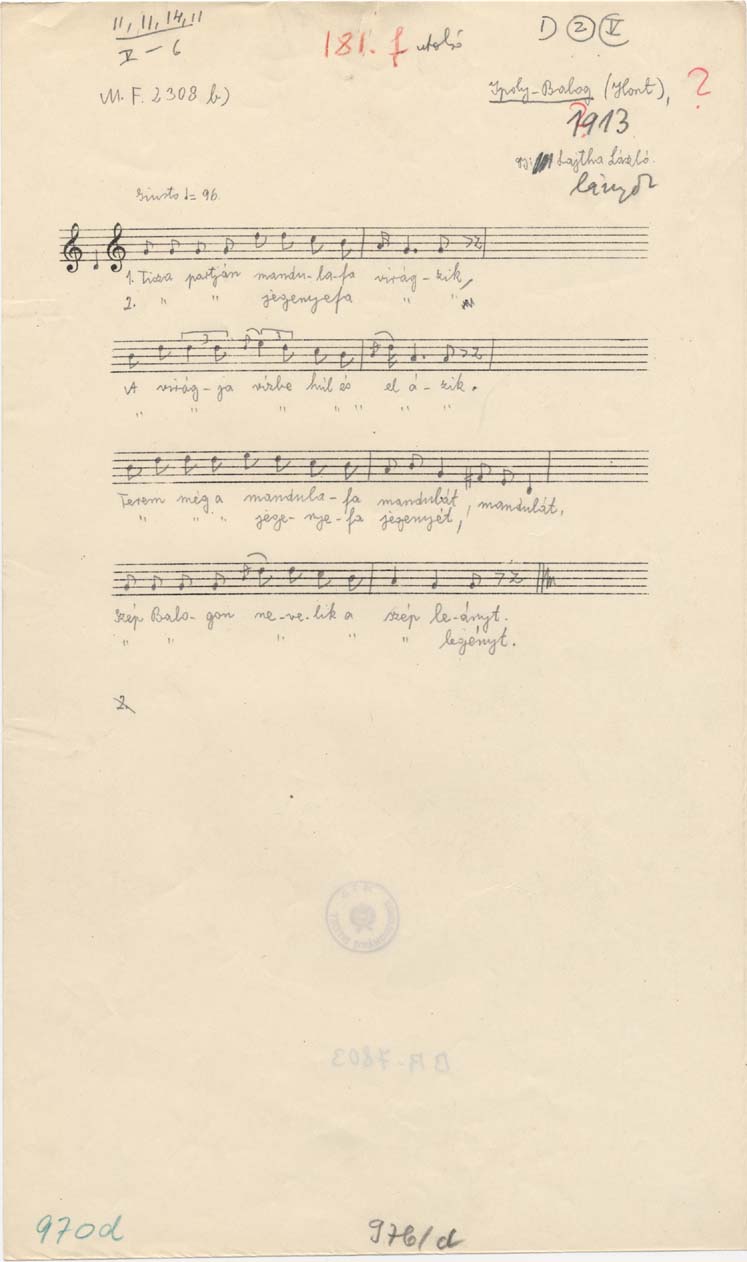 11, 11, 14, 11
V – 6
181. f utolsó
1) 2 V
M. F. 2308 b)
Ipoly-Balog (Hont), ?
1913
?
gy: Lajtha László.
lányok
Giusto ♩= 96.
1. Tisza partján mandu-la-fa virág-zik,
2. " " jegenyefa " "
A virág-ja vízbe húl és el á-zik.
" " " " " " "
Terem még a mandula-fa mandulát, mandulát,
" " " jege-nye-fa jegenyét,
Szép Balo-gon ne-ve-lik a szép le-ányt.
" " " " " legényt.
2.
BR-7803
970d
976/d